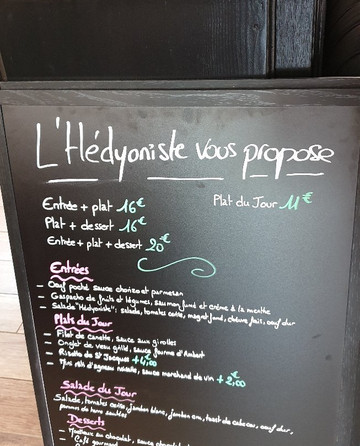 L'Hédyoniste vous propose
Entrée + plat 16€
Plat du Jour 11€
Plat + dessert 16€
Entrée + plat + dessert 20€
Entrées
- Oeuf poché sauce chorizo et parmesan
- Gaspacho de fruits et légumes, saumon fumé et crème à la menthe
- Salade "Hédyoniste": salade, tomates cerise, magret fumé, chèvre frais, oeuf dur
Plats du Jour
- Filet de canette, sauce aux girolles
- Onglet de veau grillé, sauce fourme d'Ambert
- Risotto de St Jacques + 4,00
- souris d'agneau, sauce marchand de vin + 2,00
Salade du Jour
Salade, tomates cerise, jambon blanc, jambon cru, toast de cabecou, oeuf dur,
pommes de terre sautées
Desserts
- au chocolat, sauce
- Café gourmand